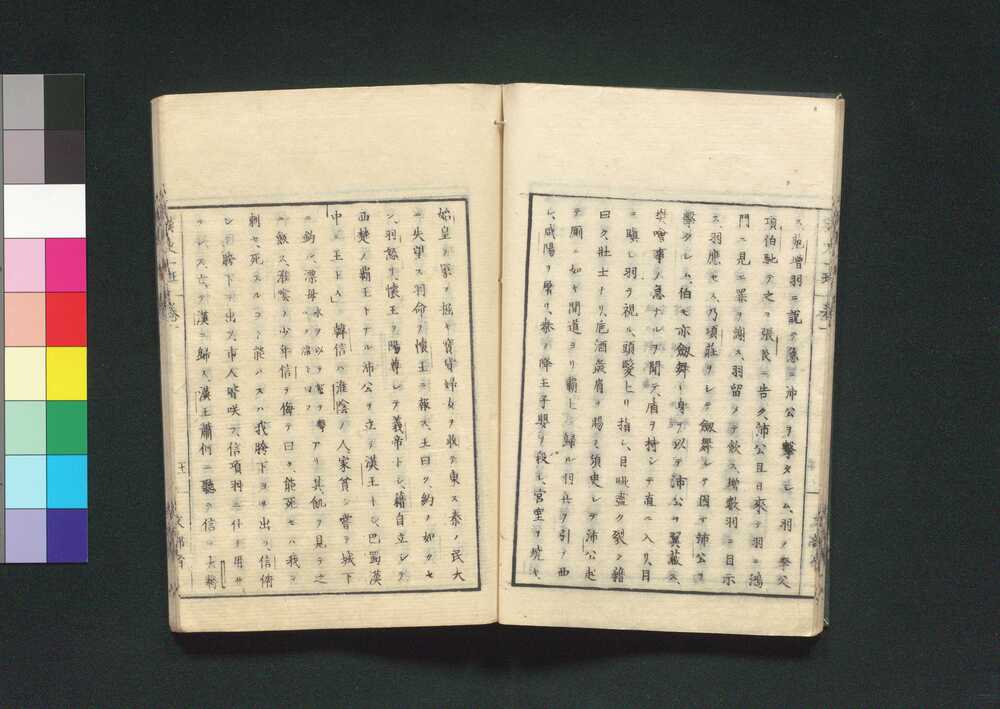 ス、范増羽ニ説テ急ニ沛公ヲ撃タシム、羽ノ季父
項伯馳テ之ヲ張良ニ告ク、沛公旦日來テ羽ニ鴻
門ニ見エ罪ヲ謝ス、羽留メテ飲ス、増數羽ニ目示
ス、羽應セス、乃項莊ヲシテ劔舞シテ因テ沛公ヲ
撃タシム、伯モ亦劔舞シ身ヲ以テ沛公ヲ翼蔽ス、
樊噲事ノ急ナルヲ聞テ、盾ヲ持シテ直ニ入リ、目
ヲ瞋シ羽ヲ視ル、頭髮上リ指シ、目眦盡ク裂ク、籍
曰ク、壯士ナリ、巵酒彘肩ヲ賜ヘ、須臾シテ沛公起
テ厠ニ如キ間道ヨリ覇上ニ歸ル、羽兵ヲ引テ西
シ、咸陽ヲ屠リ、秦ノ降王子嬰ヲ殺シ、宮室ヲ焼キ、
始皇ノ冢ヲ掘キ寶貨婦女ヲ收テ東ス、秦ノ民大
ニ失望ス、羽命ヲ懷王ニ報ス、王曰ク、約ノ如クセ
ン、羽怒リ懷王ヲ陽尊シテ義帝トシ、籍自立シテ
西楚ノ覇王トナル、沛公ヲ立テ漢王トシ、巴蜀漢
中ニ王トス、韓信ハ淮陰ノ人家貧シ、嘗テ城下
ニ釣ル、漂母
其飢ヲ見テ之
ニ飯ス、淮陰ノ少年信ヲ侮テ曰ク、能死セハ我ヲ
刺セ、死スルコト能ハスハ我胯下ヨリ出ヨ、信俯
シテ胯下ヲ出ツ、市人皆咲フ、信項羽ニ仕ヘ用ヰ
ラレス、亡テ漢ニ歸ス、漢王蕭何ニ聽テ信ヲ大將